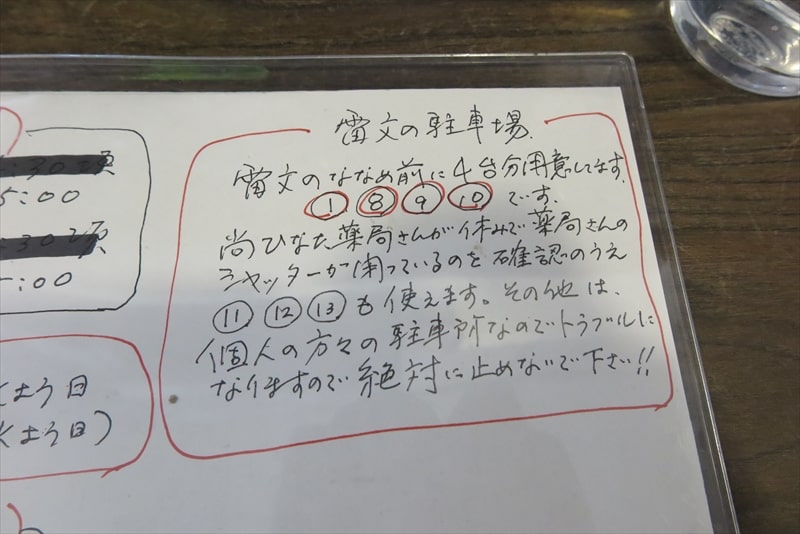 雷文の駐車場.
雷文のななめ前に4台分用意してます.
① ⑧ ⑨ ⑩ です.
尚ひなた薬局さんが休みで薬局さんの
シャッターが閉っているのを確認のうえ
⑪ ⑫ ⑬も使えます。その他は、
個人の方々の駐車所なのでトラブルに
なりますので絶対に止めないで下さい!!
:30頃
5:00
:30頃
:00
土う日
(土う日)